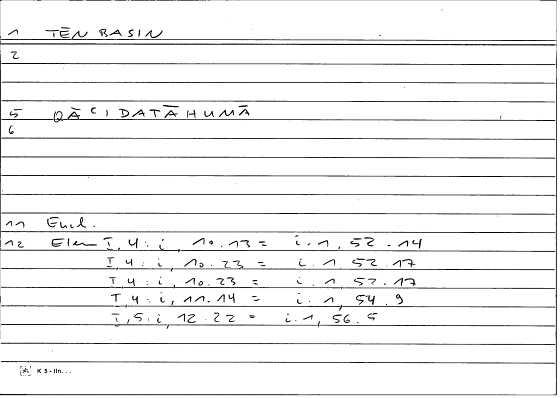 1 TĒN BASIN
2
5 QĀ ͨ I DATĀHUMĀ
6
11 Eucl.
12 Elem I, 4 : i, 10.13 = i.1, 52.14
I, 4 : i, 10.23 = i.1, 52.17
I, 4 : i, 10.23 = i.1, 52.17
I, 4 : i, 11.14 = i.1, 54.9
I, 5 : i, 12.22 = i.1, 56.5
K 5 - IIn. . .